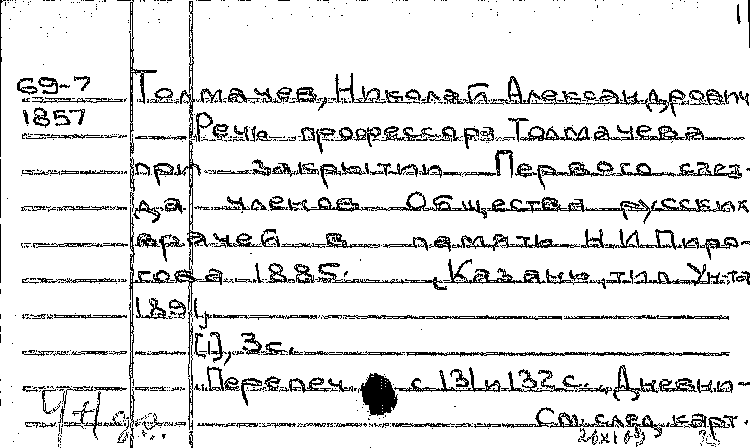 1
69-7 Толмачев, Николай Александрович
1857 Речь профессора Толмачева
при закрытии Первого съез-
да членов Общества русских
врачей в память Н.И.Пиро-
гова 1885. [Казань, тип. Ун-та
1891],
[1], 3 с.
Перепеч. с 131 и 132 с. „Дневни-
См. след. карт.